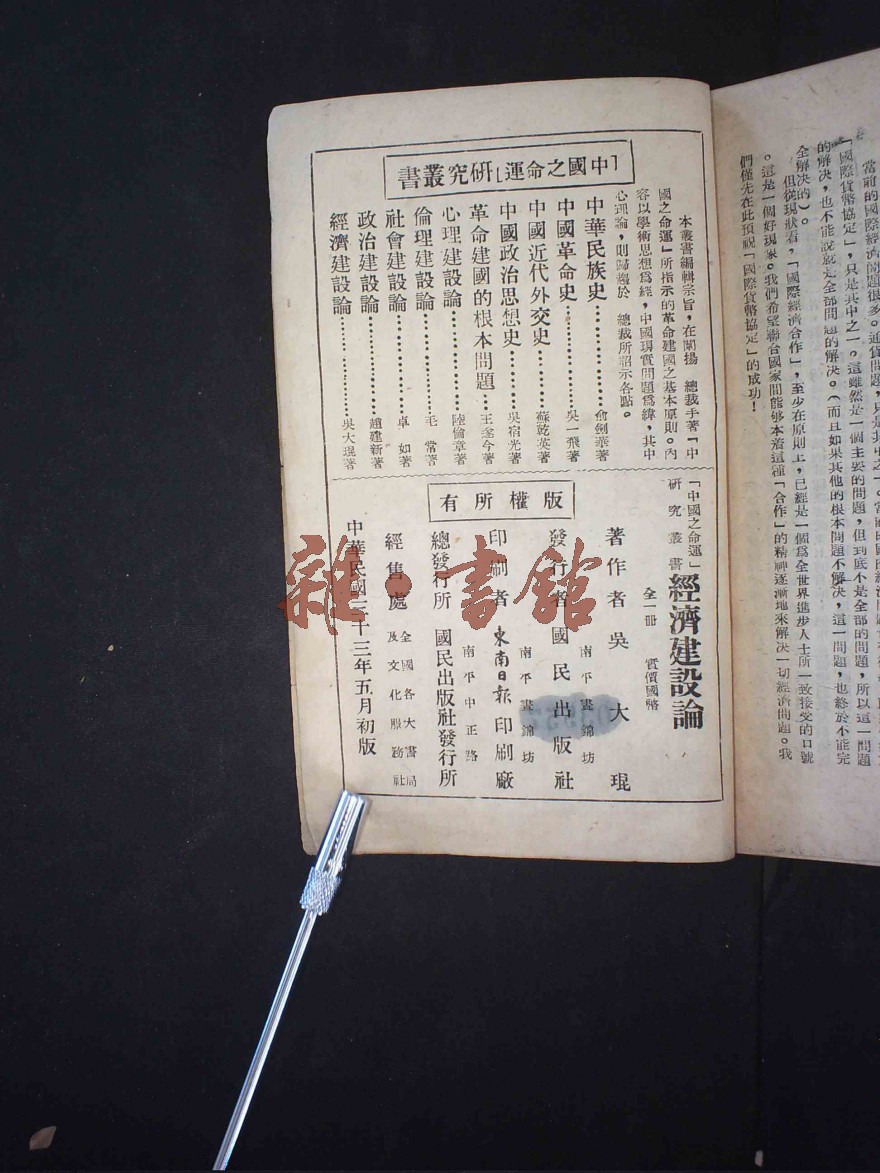 當前的國際經濟問題很多。通貨問題,只是其中之一。
「國際貨幣協定」,只是其中之一。這雖然是一個主要的問題,但到底不是全部的問題,所以這一問題
的解決,也不能說就是全部問題的解決。(而且如果其他的根本問題不解決,這一問題,也終於不能完
全解決的)。
但從現狀看,「國際經濟合作」,至少在原則上,已經是一個爲全世界進步人士所一致接受的口號
。這是一個好現象。我們希望聯合國家間能够本着這種「合作」的精神逐漸地來解決一切經濟問題。我
們僅先在此預祝「國際貨幣協定」的成功!
「中國之命運」研究叢書
本叢書編輯宗旨,在闡揚 總裁手著「中
國之命運」所指示的革命建國之基本原則。內
容以學術思想爲經,中國現實問題爲緯,其中
心理論,則歸趨於 總裁所詔示各點。
中華民族史…………俞劍華著
中國革命史…………吳一飛著
中國近代外交史……蘇乾英著
中國政治思想史……吳宿光著
革命建國的根本問題…王遂今著
心理建設論…………陸倫章著
倫理建設論…………毛 常著
社會建設論…………卓 如著
政治建設論…………趙建新著
經濟建設論…………吳大琨著
版權所有
「中國之命運」
研究叢書
經濟建設論
全一冊 實價國幣
著作者 吳大琨
南平晝錦坊
發行者 國民出版社
南平晝錦坊
印刷者 東南日報印刷廠
南平中正路
總發行所 國民出版社發行所
經售處 全國各大書局
及文化服務社
中華民國三十三年五月初版
雜·書館